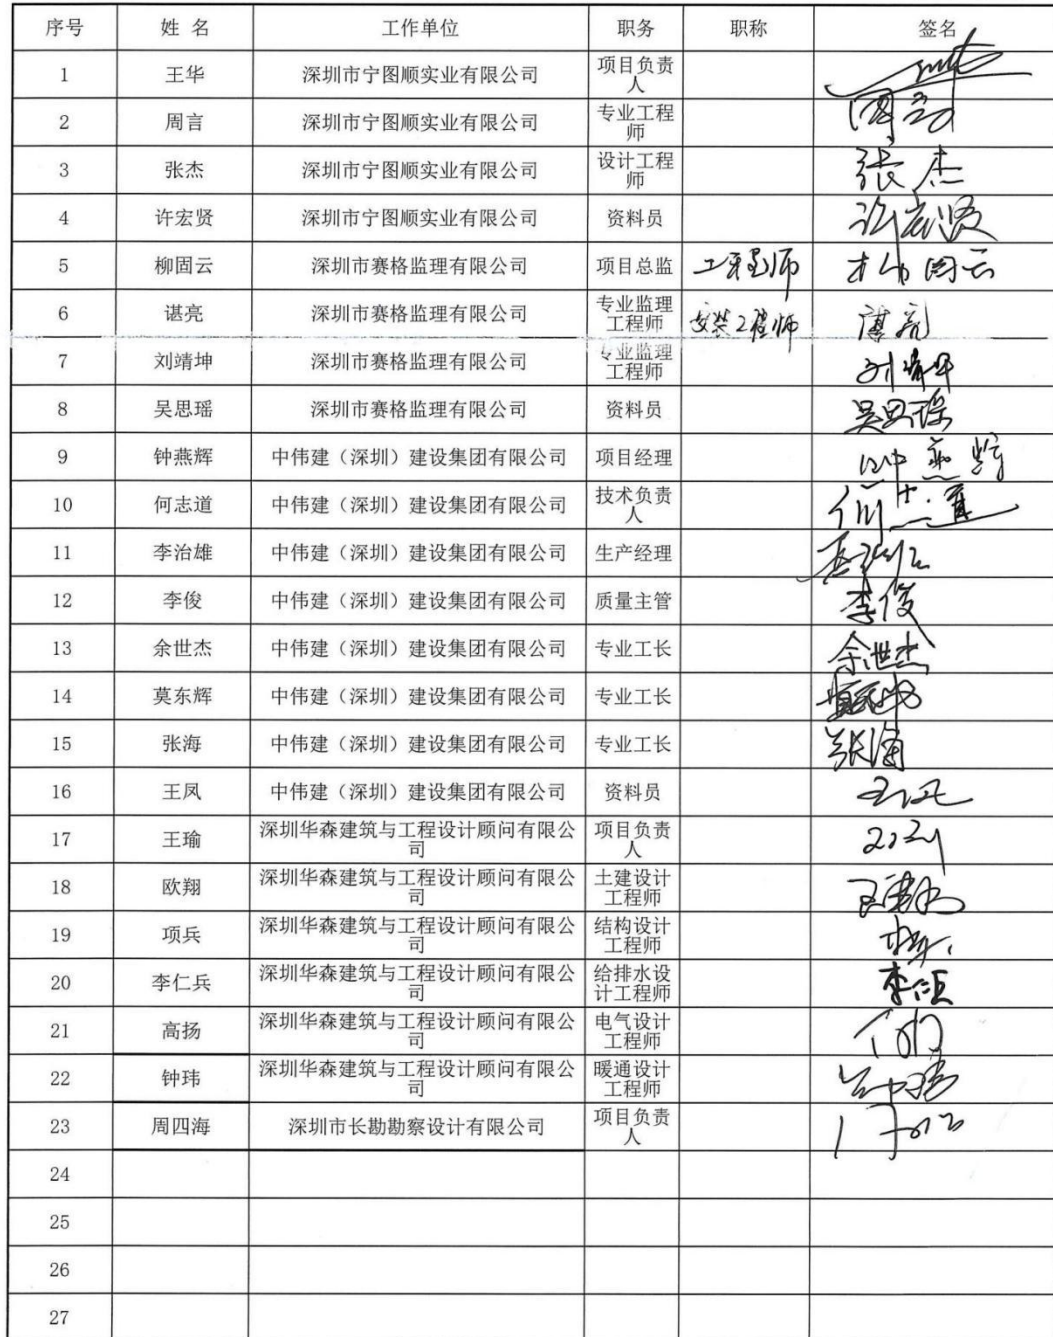 序号 姓 名 工作单位 职务 职称 签名
1 王华 深圳市宁图顺实业有限公司 项目负责人
2 周言 深圳市宁图顺实业有限公司 专业工程师
3 张杰 深圳市宁图顺实业有限公司 设计工程师 张杰
4 许宏贤 深圳市宁图顺实业有限公司 资料员 许宏贤
5 柳固云 深圳市赛格监理有限公司 项目总监 工程师 柳固云
6 谌亮 深圳市赛格监理有限公司 专业监理工程师 安装工程师 谌亮
7 刘靖坤 深圳市赛格监理有限公司 专业监理工程师 刘靖坤
8 吴思瑶 深圳市赛格监理有限公司 资料员 吴思瑶
9 钟燕辉 中伟建（深圳）建设集团有限公司 项目经理 钟燕辉
10 何志道 中伟建（深圳）建设集团有限公司 技术负责人 何志道
11 李治雄 中伟建（深圳）建设集团有限公司 生产经理
12 李俊 中伟建（深圳）建设集团有限公司 质量主管 李俊
13 余世杰 中伟建（深圳）建设集团有限公司 专业工长 余世杰
14 莫东辉 中伟建（深圳）建设集团有限公司 专业工长
15 张海 中伟建（深圳）建设集团有限公司 专业工长 张海
16 王凤 中伟建（深圳）建设集团有限公司 资料员 王凤
17 王瑜 深圳华森建筑与工程设计顾问有限公司 项目负责人
18 欧翔 深圳华森建筑与工程设计顾问有限公司 土建设计工程师
19 项兵 深圳华森建筑与工程设计顾问有限公司 结构设计工程师
20 李仁兵 深圳华森建筑与工程设计顾问有限公司 给排水设计工程师 李仁兵
21 高扬 深圳华森建筑与工程设计顾问有限公司 电气设计工程师
22 钟玮 深圳华森建筑与工程设计顾问有限公司 暖通设计工程师
23 周四海 深圳市长勘勘察设计有限公司 项目负责人
24
25
26
27